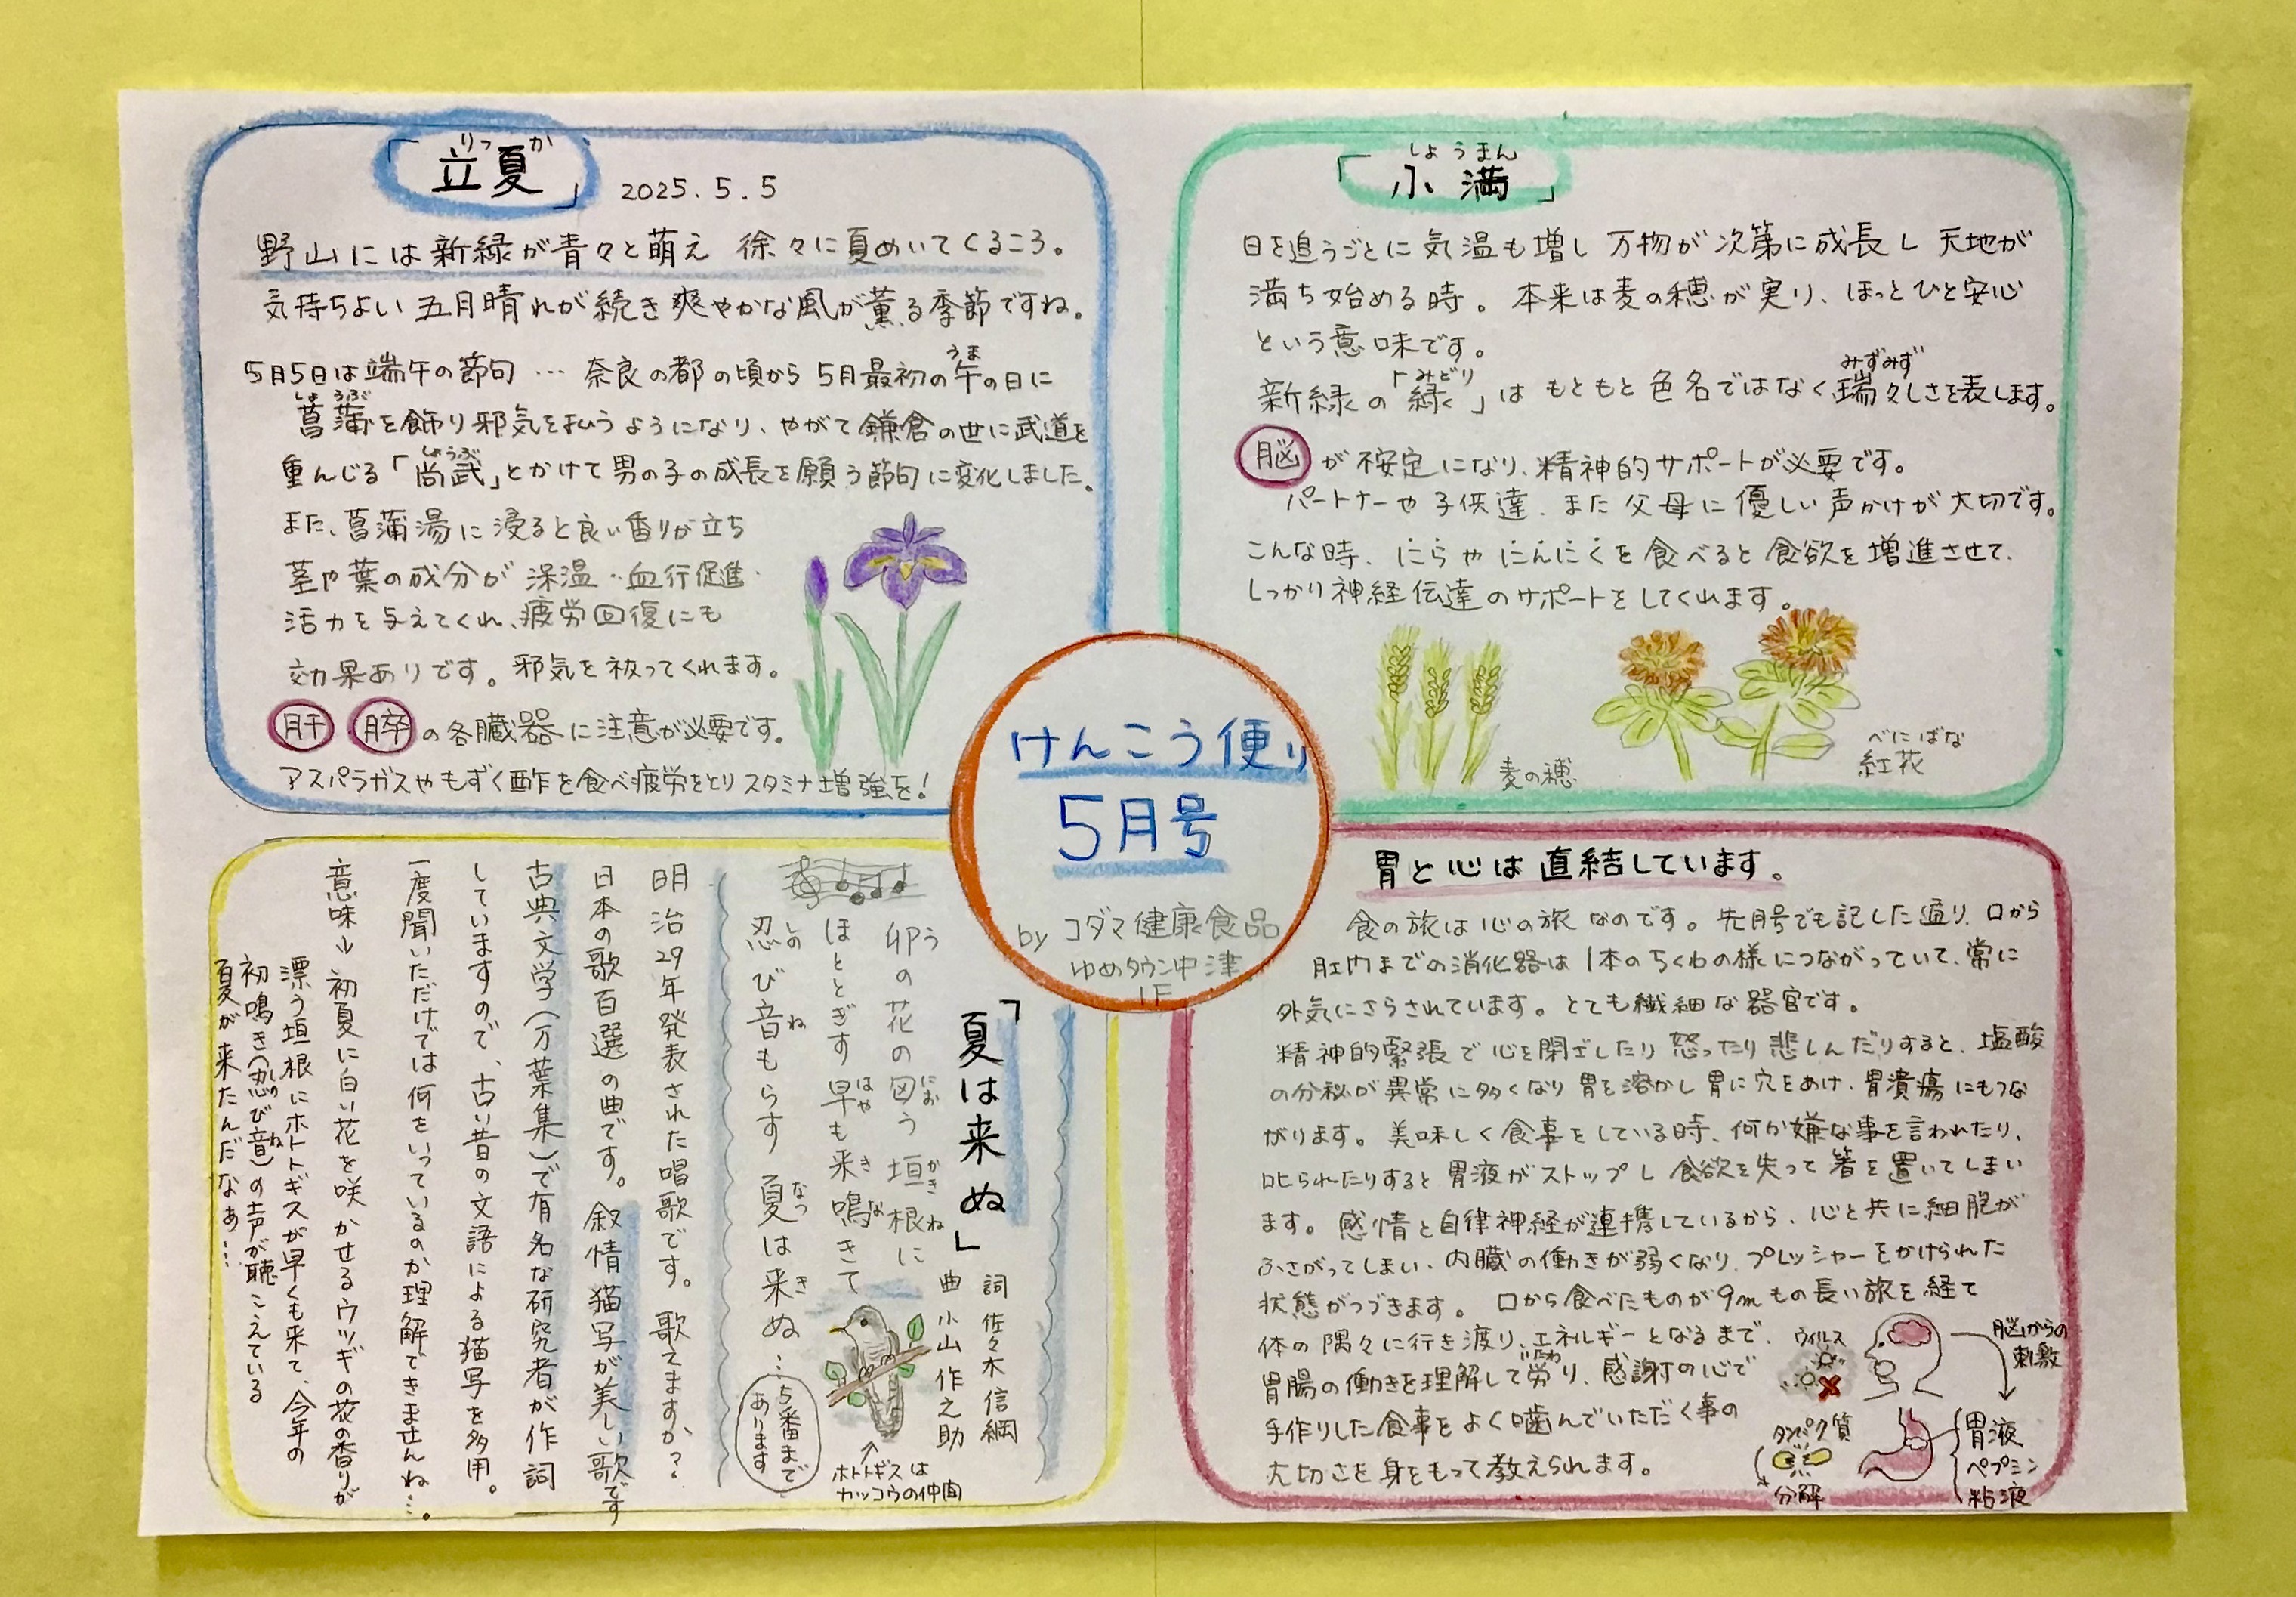 けんこう便り
5月号
by コダマ健康食品
ゆめタウン中津
1F
「立夏」 2025.5.5
りっか
野山には新緑が青々と萌え 徐々に夏めいてくるころ。
気持ちよい五月晴れが続き爽やかな風が薫る季節ですね。
5月5日は端午の節句 … 奈良の都の頃から5月最初の午の日に
うま
菖蒲を飾り邪気を払うようになり、やがて鎌倉の世に武道を
しょうぶ
重んじる「尚武」とかけて男の子の成長を願う節句に変化しました。
しょうぶ
また、菖蒲湯に浸ると良い香りが立ち
茎や葉の成分が 保温・血行促進・
活力を与えてくれ、疲労回復にも
効果ありです。邪気を祓ってくれます。
肝 膵の各臓器に注意が必要です。
アスパラガスやもずく酢を食べ疲労をとりスタミナ増強を!
「小満」
しょうまん
日を追うごとに気温も増し 万物が次第に成長し 天地が
満ち始める時。本来は麦の穂が実り、ほっとひと安心
という意味です。
新緑の「緑」は もともと色名ではなく瑞々しさを表します。
みどり
みずみず
脳が不安定になり、精神的サポートが必要です。
パートナーや子供達、また父母に優しい声かけが大切です。
こんな時、にらやにんにくを食べると食欲を増進させて、
しっかり神経伝達のサポートをしてくれます。
麦の穂
紅花
べにばな
「夏は来ぬ」
詞 佐々木信綱
曲 小山作之助
卯の花の匂う 垣根に
う にお かきね
ほととぎす 早も来鳴きて
はや き な
忍び音もらす 夏は来ぬ…
しの ね なつ き
5番まで
あります
ホトトギスは
カッコウの仲間
明治29年発表された唱歌です。歌えますか?
日本の歌百選の曲です。叙情猫写が美しい歌です
古典文学(万葉集)で有名な研究者が作詞
していますので、古い昔の文語による猫写を多用。
一度聞いただけでは何をいっているのか理解できませんね…。
意味→初夏に白い花を咲かせるウツギの花の香りが
漂う垣根にホトトギスが早くも来て、今年の
初鳴き(忍び音)の声が聴こえている
しの ね
夏が来たんだなぁ……
胃と心は直結しています。
食の旅は心の旅なのです。先月号でも記した通り、口から
肛門までの消化器は1本のちくわの様につながっていて、常に
外気にさらされています。とても繊細な器官です。
精神的緊張で心を閉ざしたり怒ったり悲しんだりすると、塩酸
の分秘が異常に多くなり胃を溶かし胃に穴をあけ、胃潰瘍にもつな
がります。美味しく食事をしている時、何か嫌な事を言われたり、
叱られたりすると胃液がストップし食欲を失って箸を置いてしまい
ます。感情と自律神経が連携しているから、心と共に細胞が
ふさがってしまい、内臓の働きが弱くなり、プレッシャーをかけられた
状態がつづきます。口から食べたものが9mもの長い旅を経て
体の隅々に行き渡り、エネルギーとなるまで、
胃腸の働きを理解して労り、感謝の心で
いたわ
手作りした食事をよく噛んでいただく事の
大切さを身をもって教えられます。
ウィルス
脳からの
刺激
タンパク質
分解
胃液
ペプシン
粘液